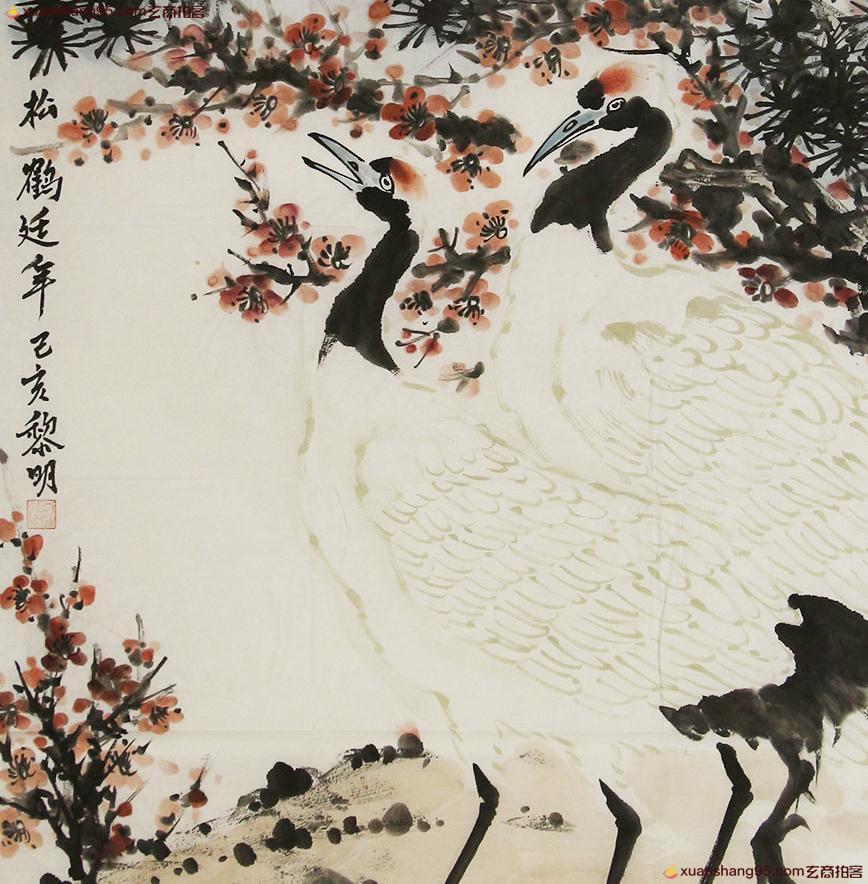 xuanshang95.com玄商拍客
松鹤延年 己亥黎明
xuanshang95.com玄商拍客